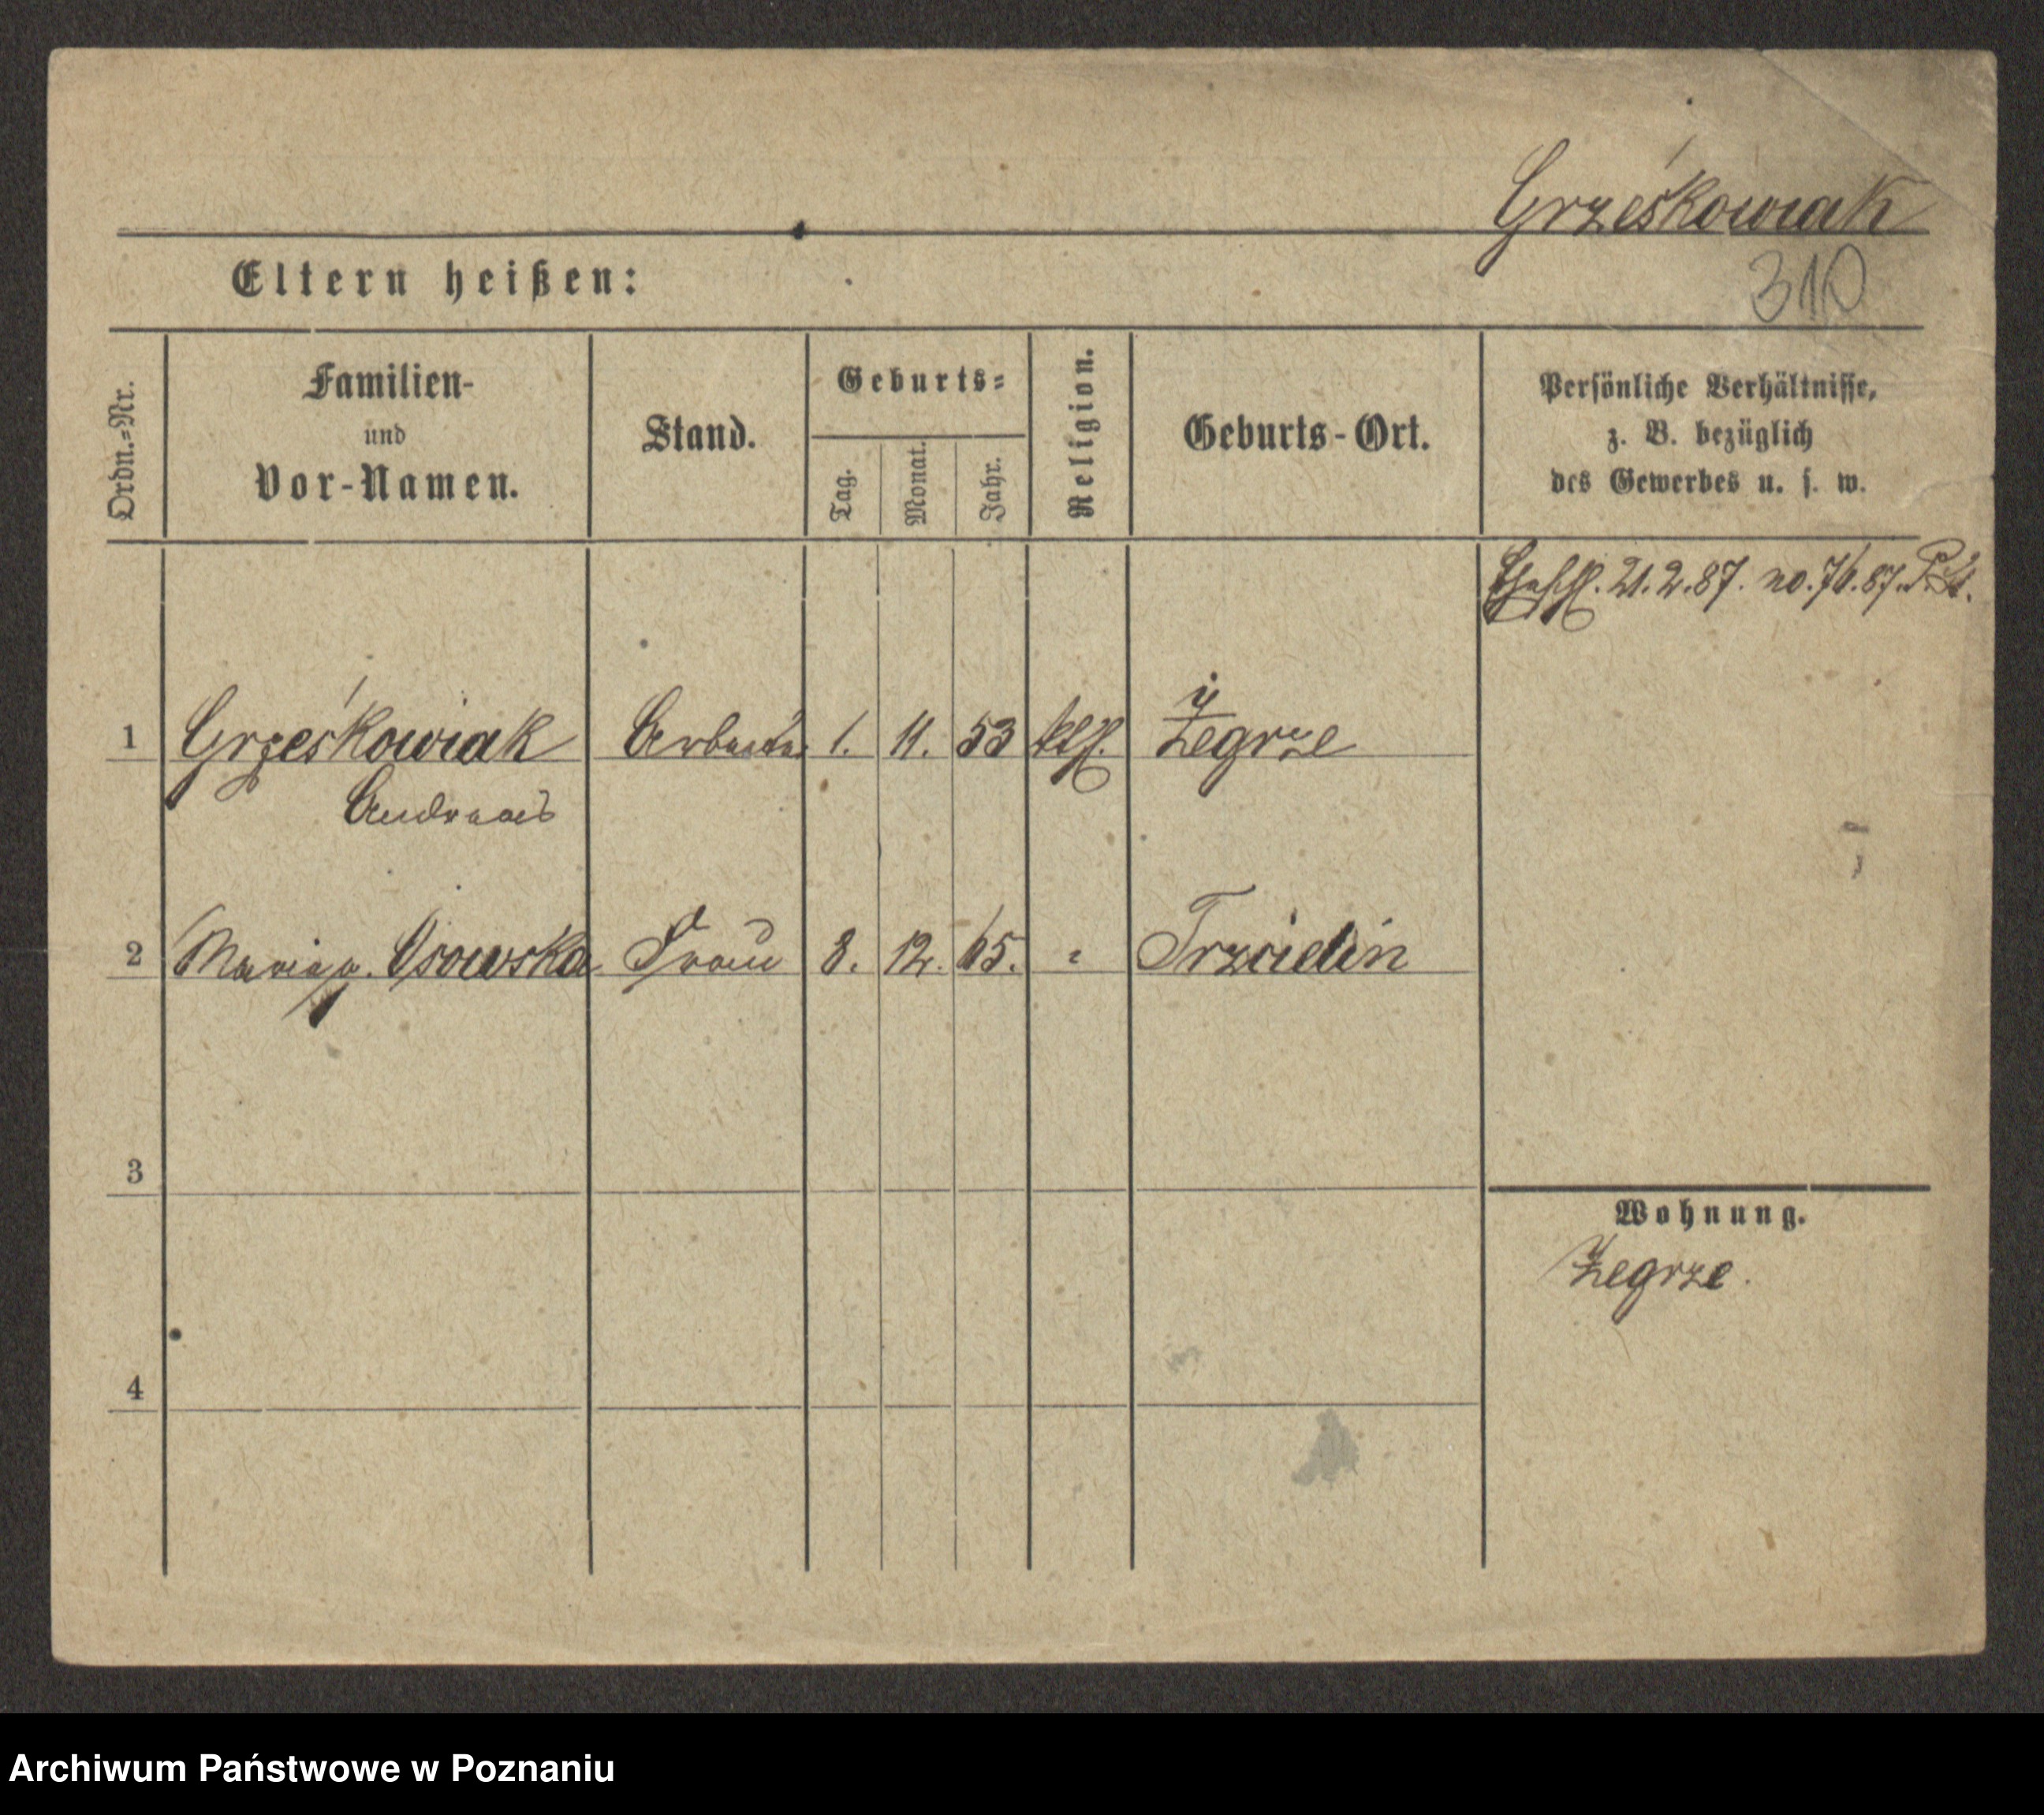 Grześkowiak
310
Eltern heißen:
Ordn.=Nr.
Familien-
und
Vor-Namen.
Stand.
Geburts=
Tag.
Monat.
Jahr.
Religion.
Geburts-Ort.
Persönliche Verhältnisse,
z. B. bezüglich
des Gewerbes u. s. w.
21.2.87. no. 76.87.
1 Grześkowiak Arbeiter 1. 11. 53 ktl. Żegrze
Andreas
2 Maria g. Osowska Frau 8. 12. 65. " Trzcielin
3
Wohnung.
Żegrze.
4
Archiwum Państwowe w Poznaniu